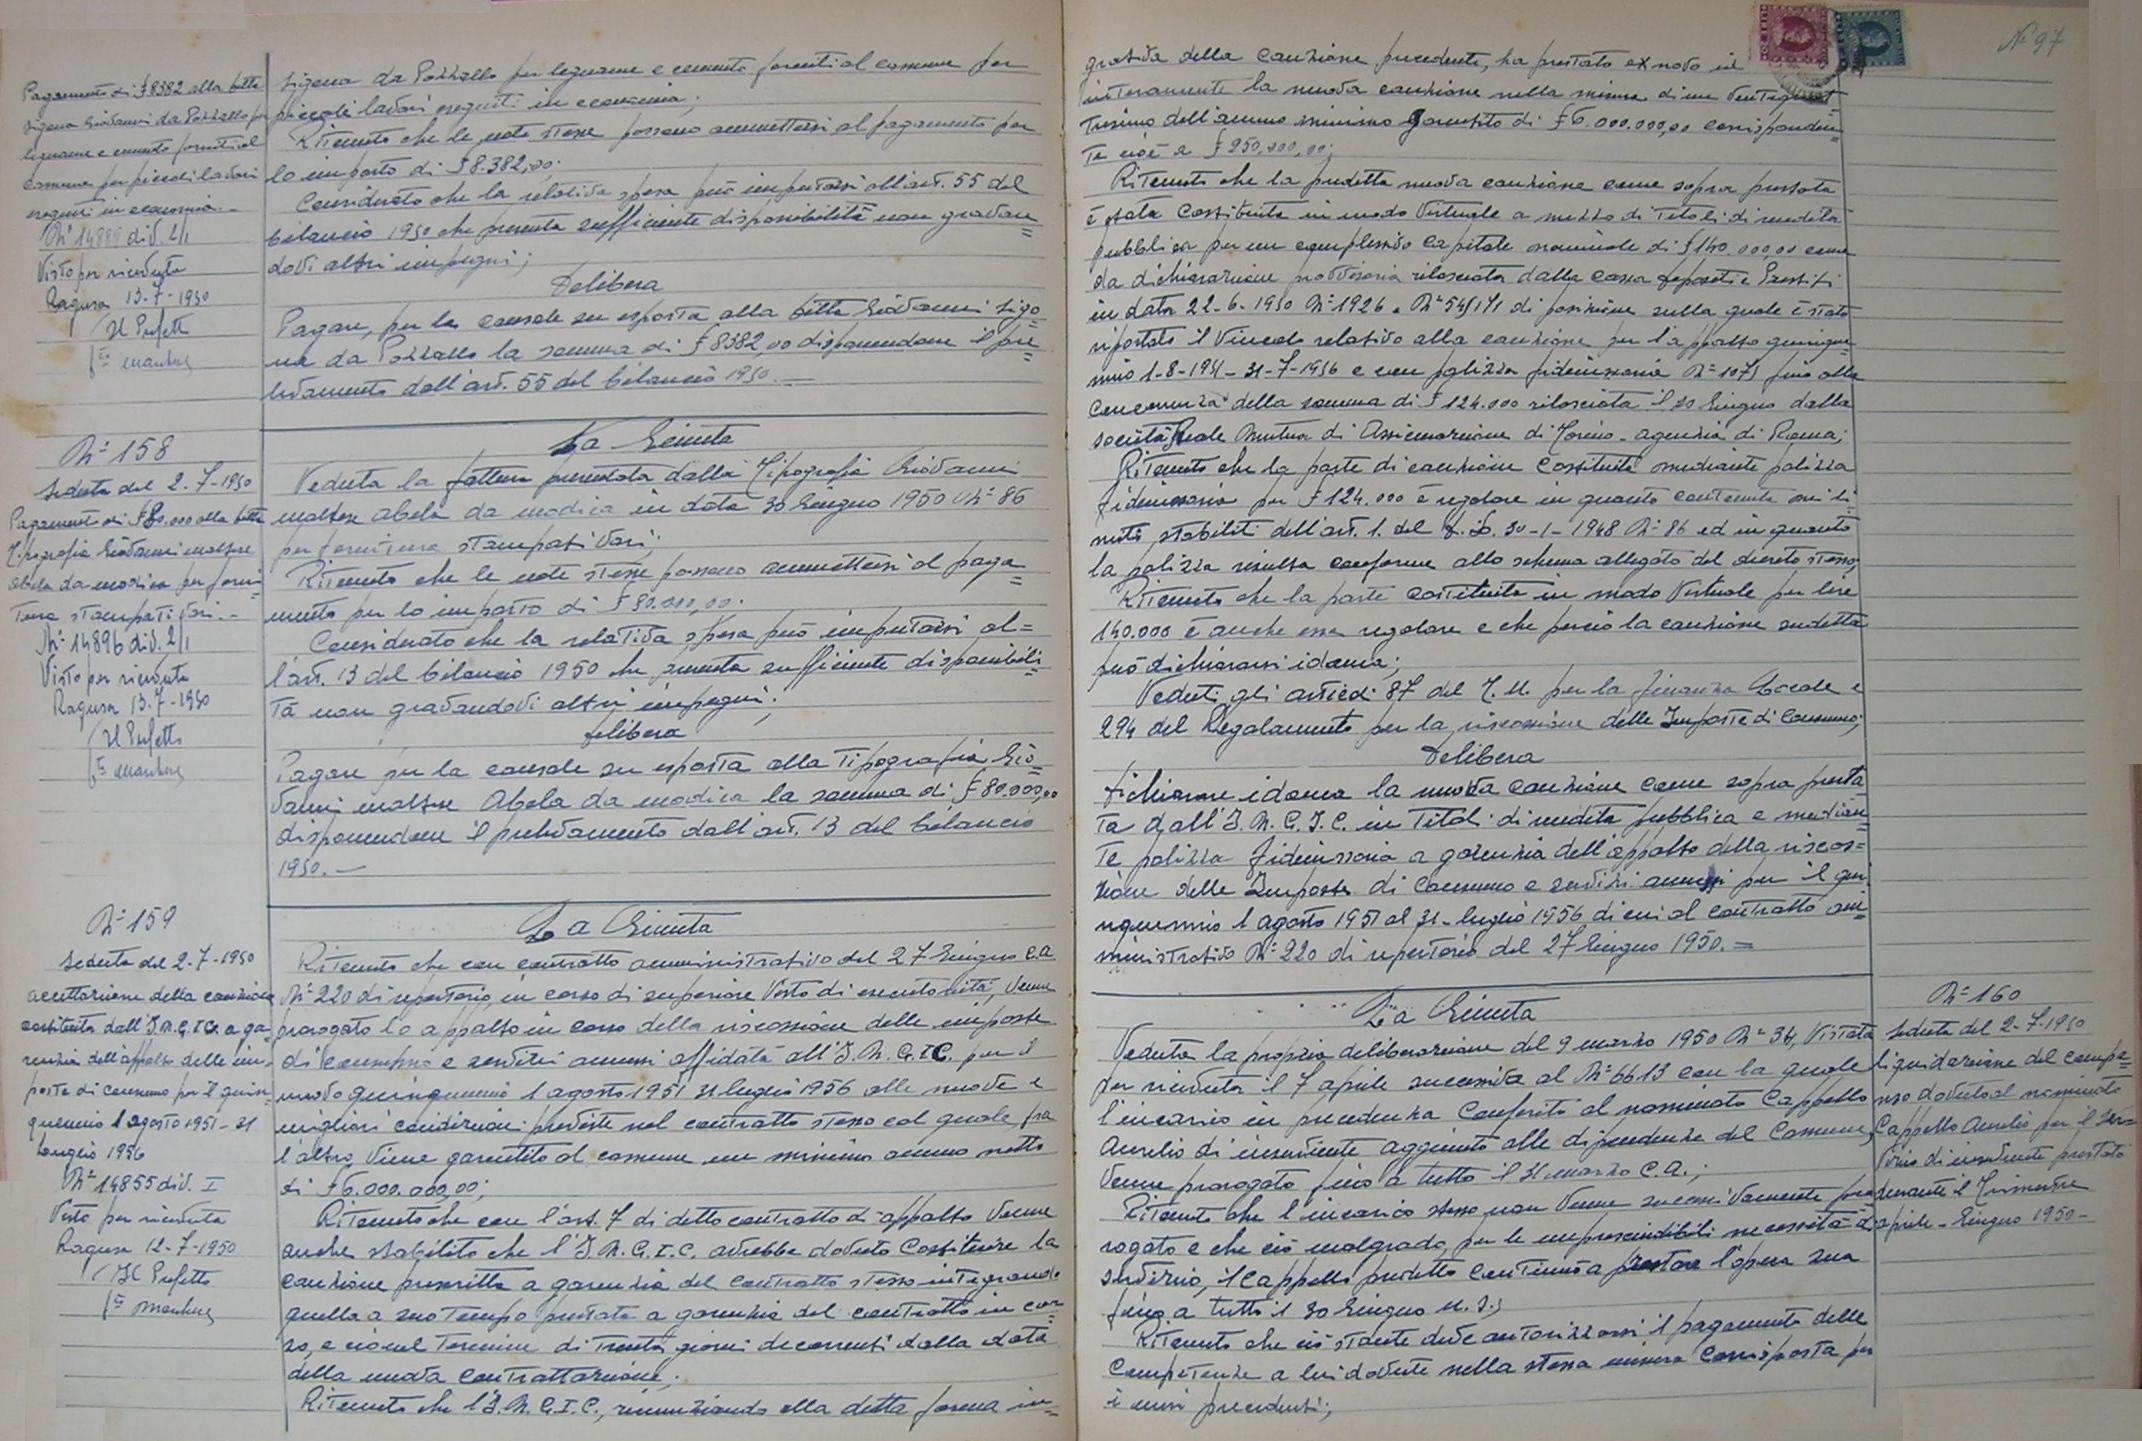 Pagamento di £ 8382 alla ditta
Sigona Giovanni da Pozzallo per
legname e cemento forniti al
comune per piccoli lavori
eseguiti in economia. -
N° 14899 div. 2/1
Visto per ricevuta
Ragusa 13-7-1950
Il Prefetto
N° 158
Seduta del 2-7-1950
Pagamento di £ 80.000 alla ditta
Tipografia Giovanni Maltese
Abela da Modica per forni-
tura stampati vari. -
N° 14896 div. 2/1
Visto per ricevuta
Ragusa 13-7-1950
Il Prefetto
N° 159
Seduta del 2-7-1950
accettazione della cauzione
costituita dall'I.N.G.I.C. a ga=
renzia dell'appalto delle im=
poste di consumo per il quin=
quennio 1 agosto 1951 - 31
Luglio 1956
N° 14855 div. I
Visto per ricevuta
Ragusa 12-7-1950
Il Prefetto
Sigona da Pozzallo per legname e cemento forniti al comune per
piccoli lavori eseguiti in economia;
Ritenuto che le note stesse possono ammettersi al pagamento per
lo importo di £ 8.382,00;
Considerato che la relativa spesa può imputarsi all'art. 55 del
bilancio 1950 che presenta sufficiente disponibilità non gravan=
dovi altri impegni;
Delibera
Pagare, per la causale su esposta alla ditta Giovanni Sigo=
na da Pozzallo la somma di £ 8382,00 disponendone il pre=
levamento dall'art. 55 del bilancio 1950. -
La Giunta
Veduta la fattura presentata dalla Tipografia Giovanni
Maltese Abela da Modica in data 30 Giugno 1950 N° 86
per fornitura stampati vari;
Ritenuto che le note stesse possono ammettersi al paga=
mento per lo importo di £ 80.000,00.
Considerato che la relativa spesa può imputarsi al=
l'art. 13 del bilancio 1950 che presenta sufficiente disponibili=
tà non gravandovi altri impegni;
Delibera
Pagare per la causale su esposta alla Tipografia Gio=
vanni Maltese Abela da Modica la somma di £ 80.000,00
disponendone il prelevamento dall'art. 13 del bilancio
1950. -
La Giunta
Ritenuto che con contratto amministrativo del 27 Giugno c.a.
N° 220 di repertorio, in corso di superiore visto di esecutorietà, venne
prorogato lo appalto in corso della riscossione delle imposte
di consumo e servizi annessi affidata all'I.N.G.I.C. per il
nuovo quinquennio 1 agosto 1951 31 luglio 1956 alle nuove e
migliori condizioni previste nel contratto stesso col quale, fra
l'altro, viene garentito al comune un minimo annuo netto
di £ 6.000.000,00;
Ritenuto che con l'art. 7 di detto contratto di appalto venne
anche stabilito che l'I.N.G.I.C. avrebbe dovuto costituire la
cauzione prescritta a garenzia del contratto stesso integrando
quella a suo tempo prestata a garenzia del contratto in cor=
so, e ciò nel termine di trenta giorni decorrenti dalla data
della nuova contrattazione;
Ritenuto che l'I.N.G.I.C., rinunziando alla detta forma in=
N° 97
grativa della cauzione precedente, ha prestato ex novo ed
interamente la nuova cauzione nella misura di un ventiquat=
tresimo dell'annuo minimo garentito di £ 6.000.000,00 corrisponden=
te cioè a £ 250.000,00;
Ritenuto che la predetta nuova cauzione come sopra prestata
è stata costituita in modo virtuale a mezzo di titoli di rendita
pubblica per un complessivo capitale nominale di £ 140.000,00 come
da dichiarazione provvisoria rilasciata dalla Cassa depositi e Prestiti
in data 22-6-1950 N° 1926 e N° 545171 di posizione sulla quale è stato
riportato il vincolo relativo alla cauzione per l'appalto quinquen=
nio 1-8-1951 - 31-7-1956 e con polizza fideiussoria N° 1071 fino alla
concorrenza della somma di £ 124.000 rilasciata il 20 Giugno dalla
società Reale Mutua di Assicurazione di Torino - agenzia di Roma;
Ritenuto che la parte di cauzione costituita mediante polizza
fideiussoria per £ 124.000 è regolare in quanto contenuta nei li=
miti stabiliti dell'art. 1. del D.L. 30-1-1948 N° 86 ed in quanto
la polizza risulta conforme allo schema allegato del decreto stesso;
Ritenuto che la parte costituita in modo virtuale per lire
140.000 è anche essa regolare e che perciò la cauzione sudetta
può dichiararsi idonea;
Veduti gli articoli 87 del T.U. per la finanza Locale e
294 del Regolamento per la riscossione delle Imposte di Consumo;
Delibera
dichiarare idonea la nuova cauzione come sopra presta=
ta dall'I.N.G.I.C. in titoli di rendita pubblica e median=
te polizza fideiussoria a garenzia dell'appalto della riscos=
sione delle Imposte di Consumo e servizi annessi per il quin=
quennio 1 agosto 1951 al 31 - luglio 1956 di cui al contratto am=
ministrativo N° 220 di repertorio del 27 Giugno 1950. =
La Giunta
Veduta la propria deliberazione del 9 marzo 1950 N° 34, vistata
per ricevuta il 7 aprile successivo al N° 6613 con la quale
l'incarico in precedenza conferito al nominato Cappello
Aurelio di inserviente aggiunto alle dipendenze del Comune,
venne prorogato fino a tutto il 31 marzo c.a.;
Ritenuto che l'incarico stesso non venne successivamente pro=
rogato e che ciò malgrado, per le imprescindibili necessità di
servizio, il Cappello predetto continuò a prestare l'opera sua
fino a tutto il 30 Giugno u.s.;
Ritenuto che ciò stante deve autorizzarsi il pagamento delle
competenze a lui dovute nella stessa misura corrisposta per
i mesi precedenti;
N° 160
Seduta del 2-7-1950
liquidazione del compe=
nso dovuto al nominato
Cappello Aurelio per il ser=
vizio di inserviente prestato
durante il Trimestre
aprile - Giugno 1950 -